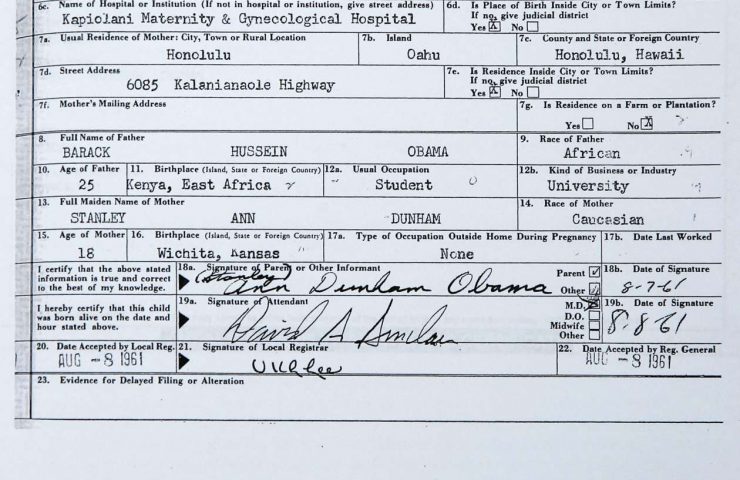 6c. Name of Hospital or Institution (If not in hospital or institution, give street address)
Kapiolani Maternity & Gynecological Hospital
6d. Is Place of Birth Inside City or Town Limits?
If no, give judicial district
Yes X No
7a. Usual Residence of Mother: City, Town or Rural Location
Honolulu
7b. Island
Oahu
7c. County and State or Foreign Country
Honolulu, Hawaii
7d. Street Address
6085 Kalanianaole Highway
7e. Is Residence Inside City or Town Limits?
If no, give judicial district
Yes X No
7f. Mother's Mailing Address
7g. Is Residence on a Farm or Plantation?
Yes No X
8. Full Name of Father
BARACK HUSSEIN OBAMA
9. Race of Father
African
10. Age of Father
25
11. Birthplace (Island, State or Foreign Country)
Kenya, East Africa
12a. Usual Occupation
Student
12b. Kind of Business or Industry
University
13. Full Maiden Name of Mother
STANLEY ANN DUNHAM
14. Race of Mother
Caucasian
15. Age of Mother
18
16. Birthplace (Island, State or Foreign Country)
Wichita, Kansas
17a. Type of Occupation Outside Home During Pregnancy
None
17b. Date Last Worked
I certify that the above stated
information is true and correct
to the best of my knowledge.
18a. Signature of Parent or Other Informant
(Stanley)
Ann Dunham Obama
Parent
Other
18b. Date of Signature
8-7-61
I hereby certify that this child
was born alive on the date and
hour stated above.
19a. Signature of Attendant
David A Sinclair
M.D. X
D.O.
Midwife
Other
19b. Date of Signature
8-8-61
20. Date Accepted by Local Reg.
AUG -8 1961
21. Signature of Local Registrar
22. Date Accepted by Reg. General
AUG -8 1961
23. Evidence for Delayed Filing or Alteration